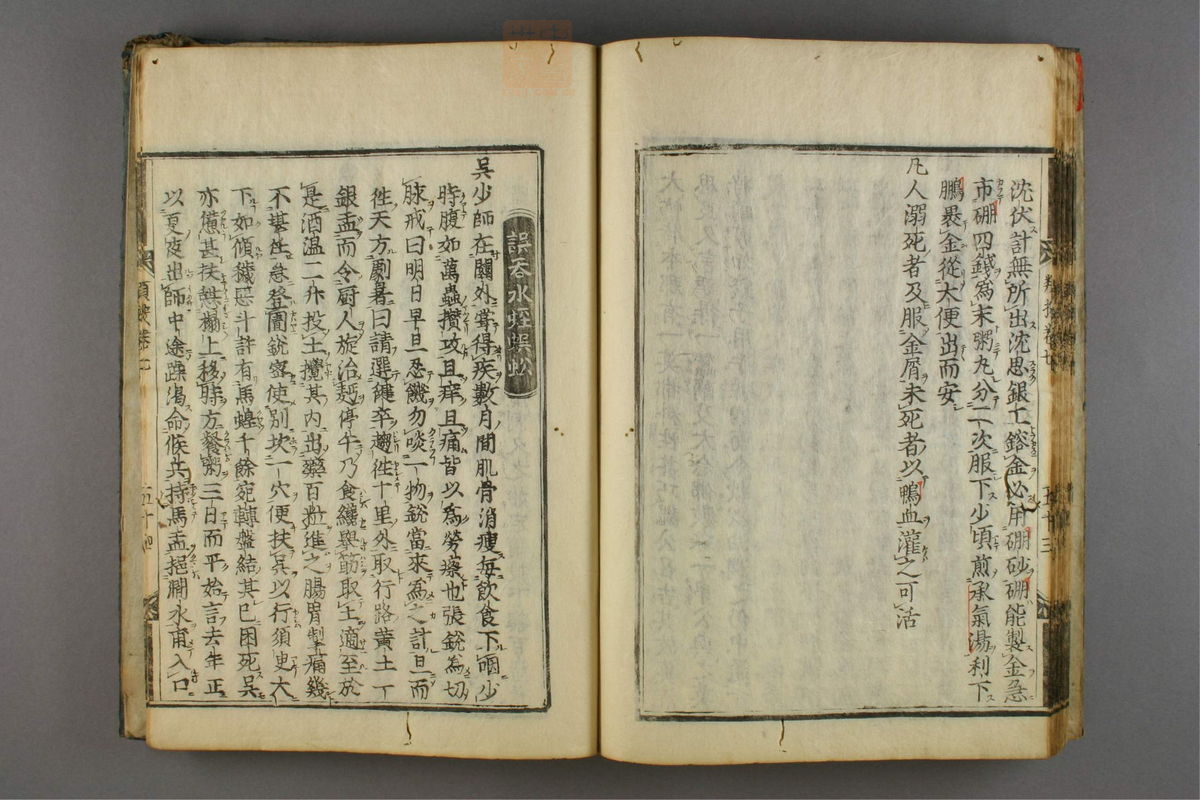 沈伏計無所出沈思銀工鎔金必用硼砂硼能製金急
市硼四錢為末粥丸分二次服下少頃煎承氣湯利下
鵬褁金從大便出而安
凡人溺死者及服金屑未死者以鴨血灌之可活
五十三
誤吞水蛭蜈蚣
吳少師在關外嘗得疾數月間肌骨消瘦每飲食下咽少
時腹如萬蟲攢攻且痒且痛皆以為勞瘵也張銳為切
脉戒曰明日早旦忍饑勿啖一物銳當來為之計旦而
徃天方劇暑曰請選健卒趨徃十里外取行路黃土一
銀盂而令厨人旋治麪停午乃食纔舉筯取土適至於
是酒温二升投土攪其內出藥百粒進之腸胃掣痛幾
不堪任急登圊銳密使別坎一穴便扶吳以行須臾大
下如傾穢惡斗許有馬蝗千餘宛轉盤結其已困死吳
亦憊甚扶憇榻上移時方餐粥三日而平始言去年正
以夏夜出師中途躁渴命候兵持馬盂挹澗水甫入口
五十四